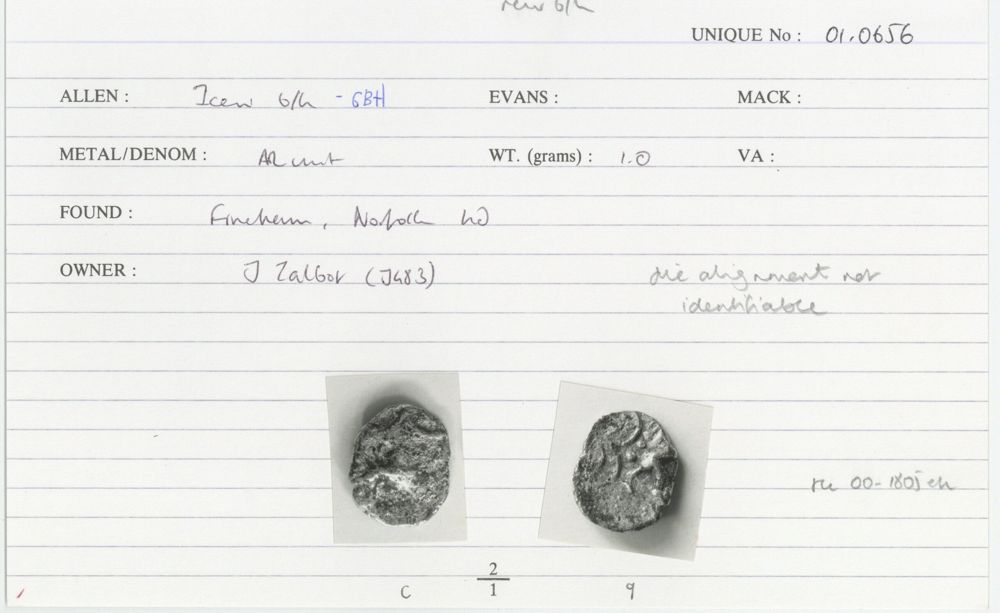 Icen b/h
UNIQUE No : 01.0656
ALLEN : Icen b/h - GBH EVANS : MACK :
METAL/DENOM : AR unit WT. (grams) : 1.0 VA :
FOUND : Fincham, Norfolk
OWNER : J Talbot (J483)
die alignment not
identifiable
00-1805
2
1
C 9